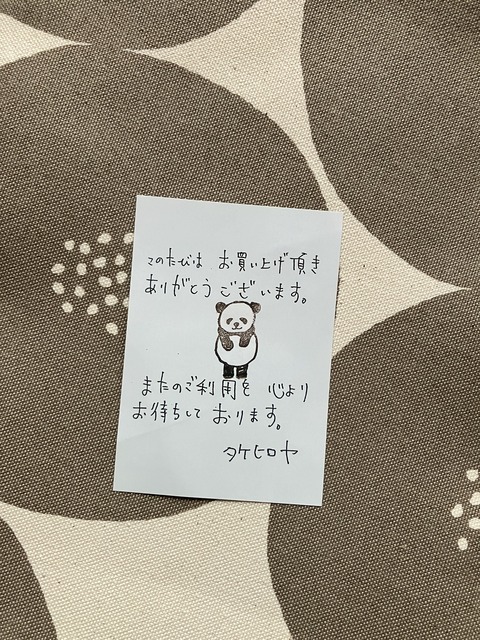 このたびは お買い上げ頂き
ありがとうございます。
またのご利用を 心より
お待ちして おります。
タケヒロヤ